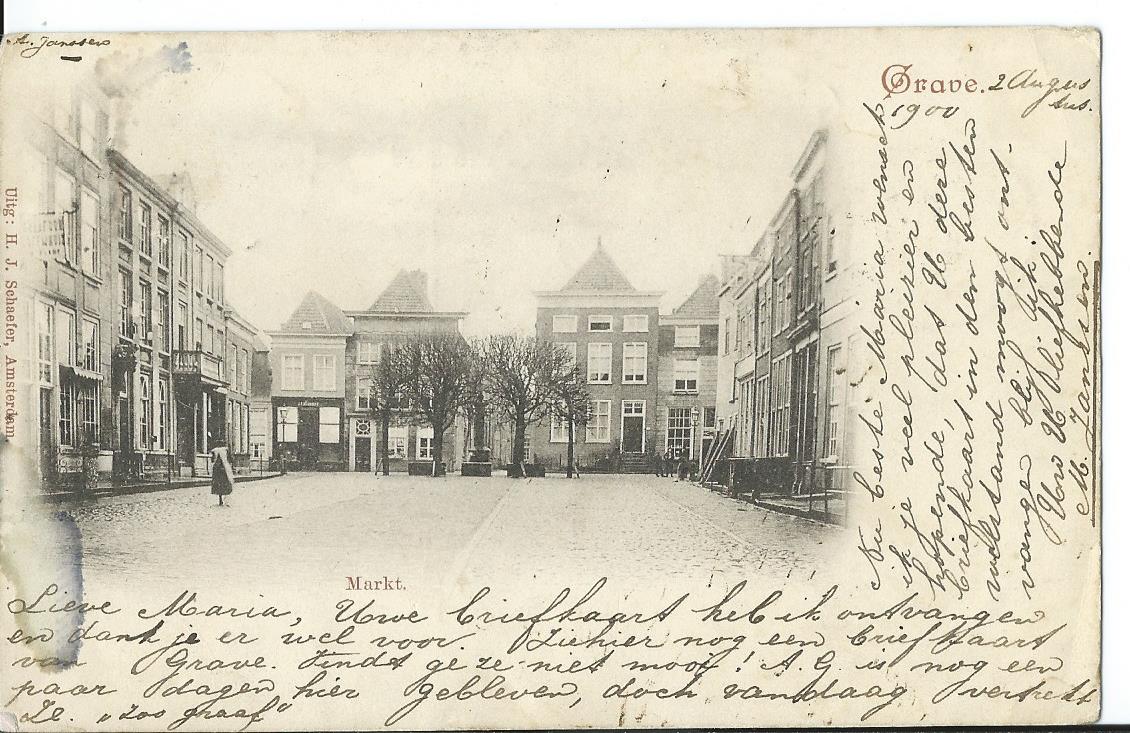 A. Janssen
Grave. 2 Augus
tus.
1900
Uitg: H. J. Schaefer, Amsterdam
Markt.
Lieve Maria, Uwe briefkaart heb ik ontvangen
en dank je er wel voor. Ziehier nog een briefkaart
van Grave. Vindt ge ze niet mooi! A.G. is nog een
paar dagen hier gebleven, doch vandaag vertrekt
Ze. "Zoo graaf"
Nu beste Maria wensch
ik je veel pleizier en
hopende, dat U dere
briefkaart in den besten
welstand moogt ont-
vangen blijf ik
Uw U liefhebbende
M. Janssen.